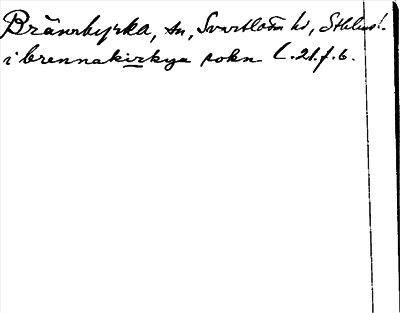 Brännkyrka, sn, Svartlösa hd, Sthlms l.
i brennakirkya sokn C. 21. f. 6.